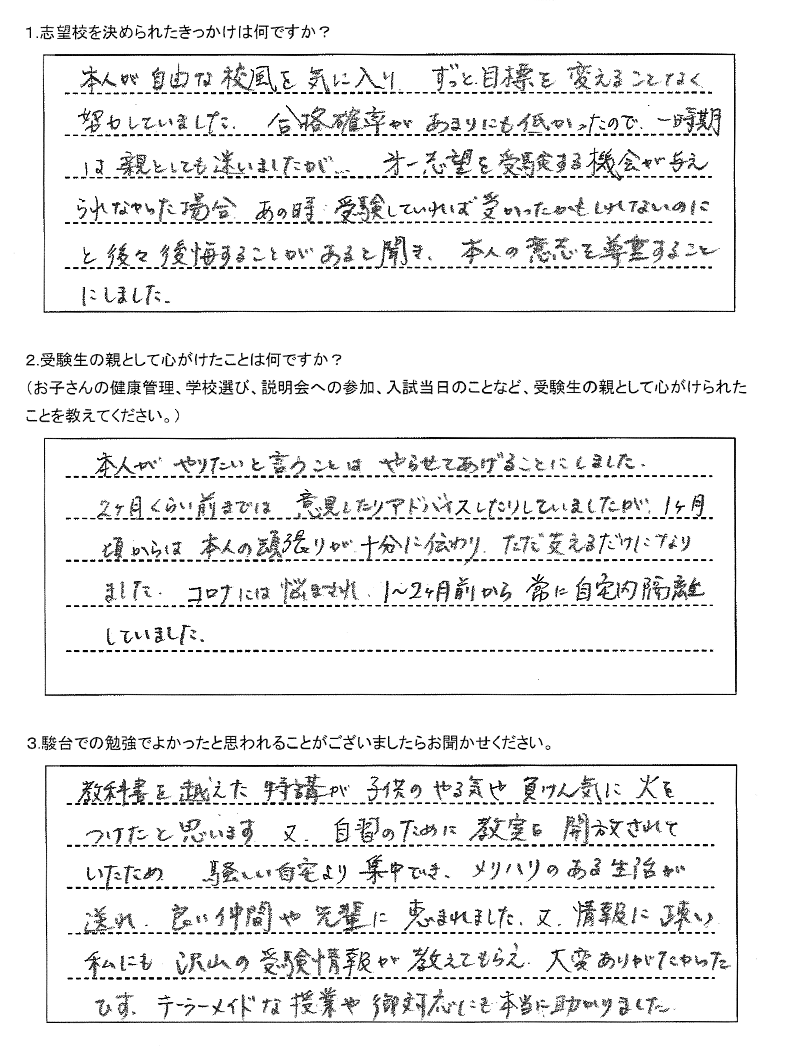 1.志望校を決められたきっかけは何ですか？
本人が自由な校風を気に入り ずっと目標を変えることなく
努力していました. 合格確率があまりにも低かったので、一時期
は親としても迷いましたが… 才一志望を受験する機会が与え
られなかった場合 あの時 受験していれば受かったかもしれないのに
と後々後悔することがあると聞き、本人の意志を尊重すること
にしました.
2.受験生の親として心がけたことは何ですか？
（お子さんの健康管理、学校選び、説明会への参加、入試当日のことなど、受験生の親として心がけられた
ことを教えてください。）
本人がやりたいと言うことは やらせてあげることにしました.
2ヶ月くらい前までは 意見したりアドバイスしたりしていましたが、1ヶ月
頃からは 本人の頑張りが十分に伝わり、ただ支えるだけになり
ました. コロナには悩まされ、1～2ヶ月前から 常に自宅内隔離
していました.
3.駿台での勉強でよかったと思われることがございましたらお聞かせください。
教科書を越えた 特講が 子供のやる気や 負けん気に 火を
つけたと思います 又、自習のために 教室も 開放されて
いたため 騒しい自宅より 集中でき、メリハリのある生活が
送れ、良い仲間や先輩に 恵まれました. 又、情報に疎い
私にも 沢山の受験情報が 教えてもらえ、大変ありがたかった
です. テーラーメイドな 授業や 御対応にも本当に助かりました.